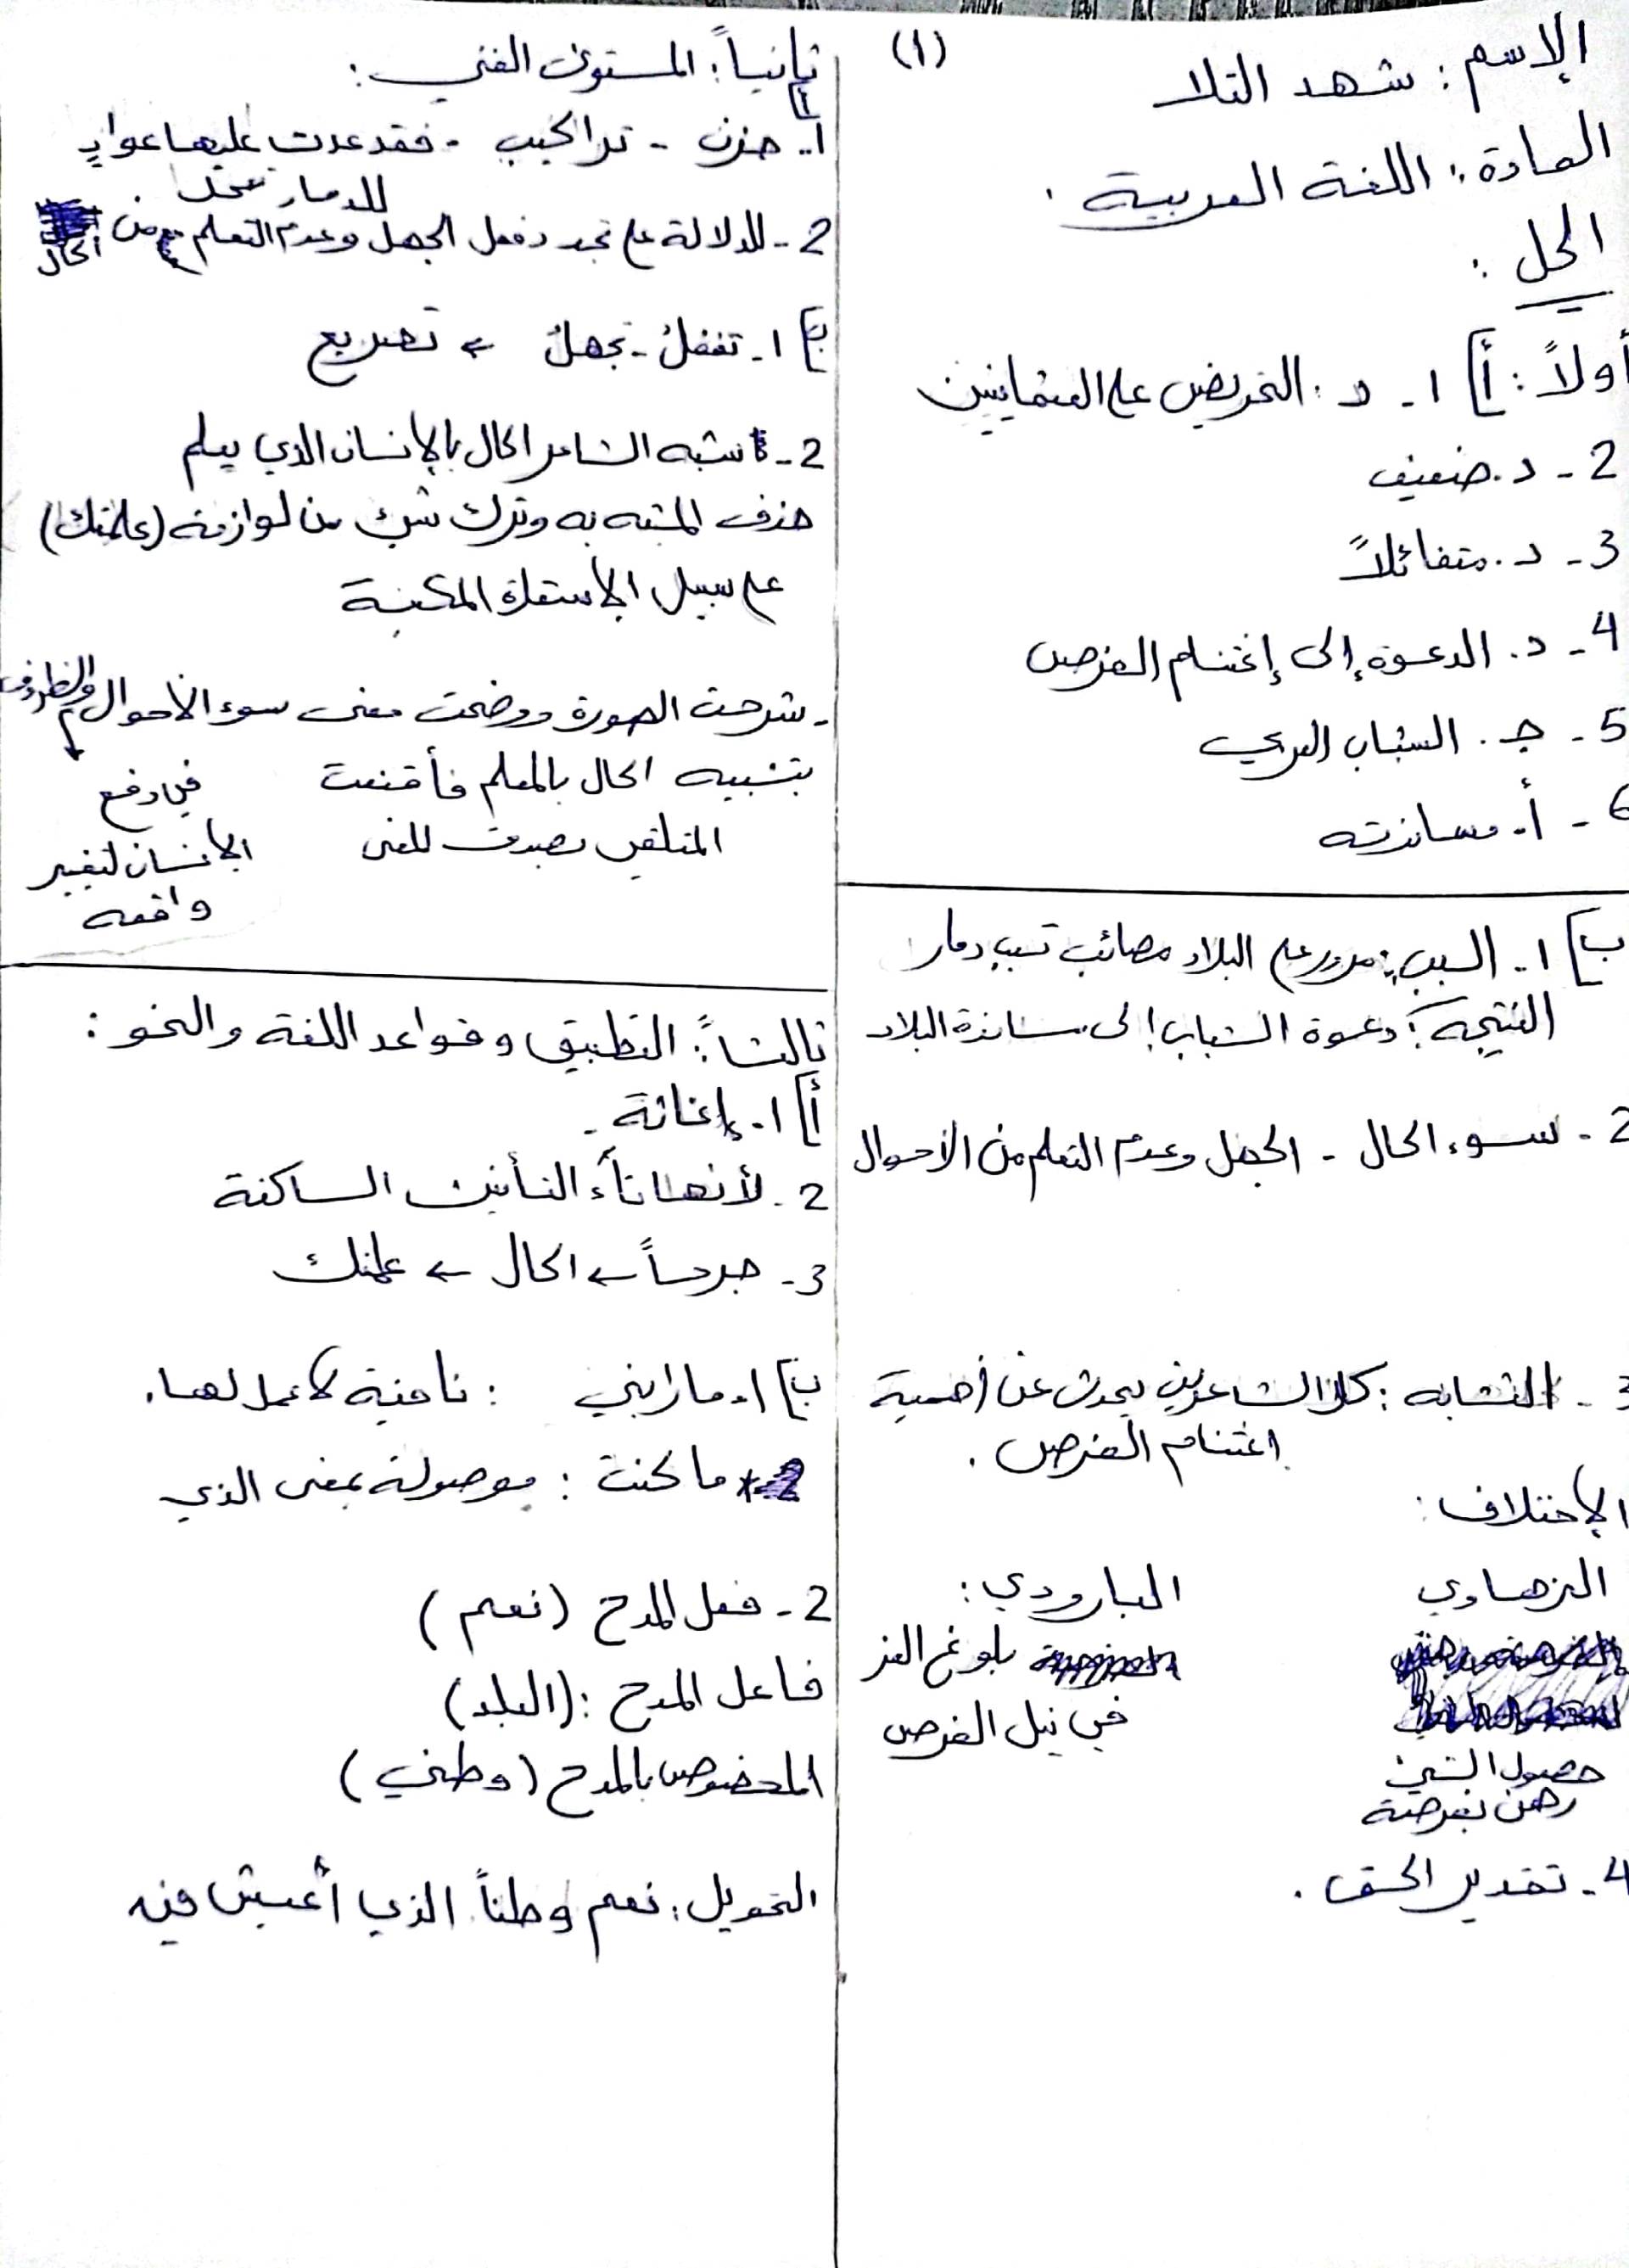 (1)
الإسم: شهد التلا
المادة: اللغة العربية.
الحل:
أولاً: أ] 1- د. التحريض على العثمانيين
2- د. ضعيف
3- د. متفائلاً
4- د. الدعوة إلى إغتنام الفرص
5- جـ. الشباب العربي
6- أ. مساندته
ب] 1- السبب: مرور على البلاد مصائب تسبب دمار
النتيجة: دعوة الشباب إلى مساندة البلاد
2- سوء الحال - الجهل وعدم التعلم من الأحوال
3- التشابه: كلا الشاعرين يحدث عن أهمية
اغتنام الفرص.
الإختلاف:
الزهاوي البارودي:
بلوغ العز
في نيل الفرص
حصول الشيء
رهن بفرصة
4- تقدير الحق.
ثانياً: المستوى الفني:
أ]
1- حزن - تراكيب - فقد عدت عليها عوادٍ
للدمار
2- للدلالة على تجدد فعل الجهل وعدم التعلم من الحال
ب] 1- تغفلُ - تجهلُ ← تصريع
2- شبه الشاعر الحال بالإنسان الذي يعلم
حذف المشبه به وترك شيء من لوازمه (علمتك)
على سبيل الاستعارة المكنية
- شرحت الصورة ووضحت معنى سوء الأحوال والظروف
بتشبيه الحال بالمعلم فأقنعت
المتلقي بصدق المعنى
في دفع
الإنسان لتغيير
واقعه
ثالثاً: التطبيق وقواعد اللغة والنحو:
أ] 1- إغاثة -
2- لأنها تاء التأنيث الساكنة
3- جرساً ← الحال ← علمتك
ب] 1- ما رابني: نافية لا عمل لها.
* ما كنت: موصولة بمعنى الذي
2- فعل المدح (نعم)
فاعل المدح: (البلد)
المخصوص بالمدح (وطني)
التحويل: نعم وطناً الذي أعيش فيه